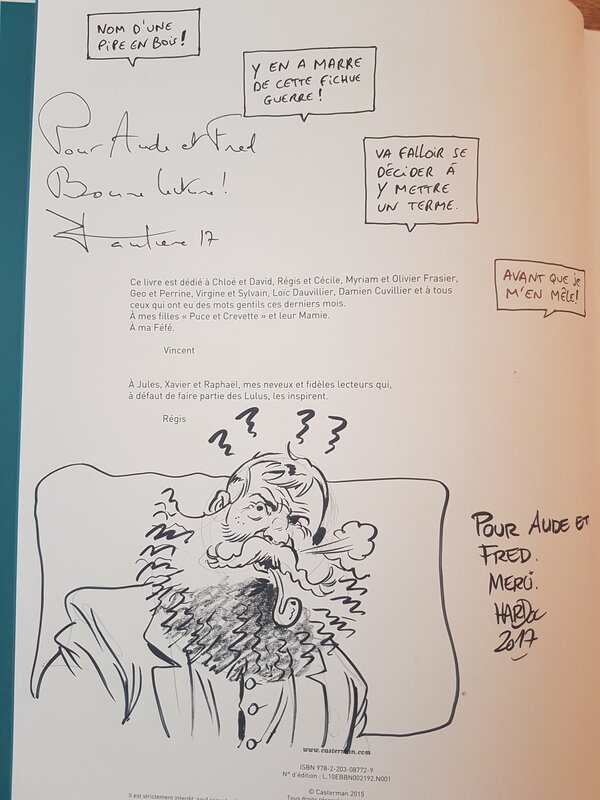 NOM D'UNE
PIPE EN BOIS!
Y EN A MARRE
DE CETTE FICHUE
GUERRE!
VA FALLOIR SE
DÉCIDER À
Y METTRE
UN TERME.
AVANT QUE JE
M'EN MÊLE!
Pour Aude et Fred
Bonne lecture!
Hautiere 17
Ce livre est dédié à Chloé et David, Régis et Cécile, Myriam et Olivier Frasier,
Geo et Perrine, Virgine et Sylvain, Loïc Dauvillier, Damien Cuvillier et à tous
ceux qui ont eu des mots gentils ces derniers mois.
À mes filles « Puce et Crevette » et leur Mamie.
À ma Féfé.
Vincent
À Jules, Xavier et Raphaël, mes neveux et fidèles lecteurs qui,
à défaut de faire partie des Lulus, les inspirent.
Régis
POUR AUDE ET
FRED.
MERCI.
2017
www.casterman.com
ISBN 978-2-203-08772-9
N° d'édition : L.10EBBN002192.N001
© Casterman 2015
Il est strictement interdit, sauf
Tous droits